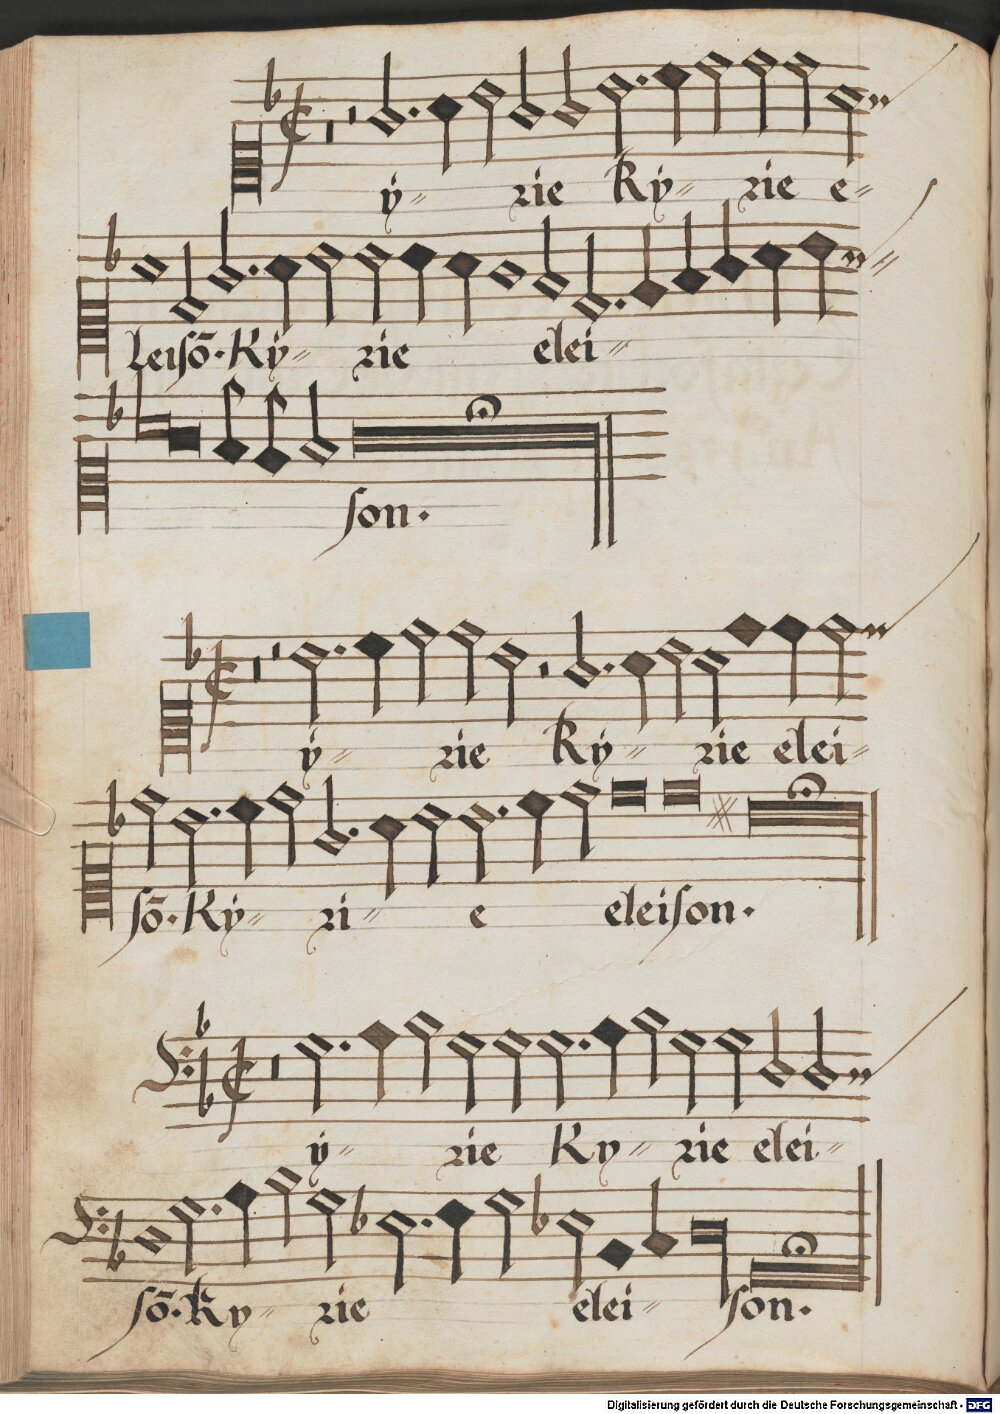 ÿ- rie Kÿ- rie e-
leisō. Kÿ- rie elei-
son.
ÿ- rie Kÿ- rie elei-
sō. Kÿ- ri- e eleison.
ÿ- rie Ky- rie elei-
sō. Ky- rie elei- son.
Digitalisierung gefördert durch die Deutsche Forschungsgemeinschaft - DFG